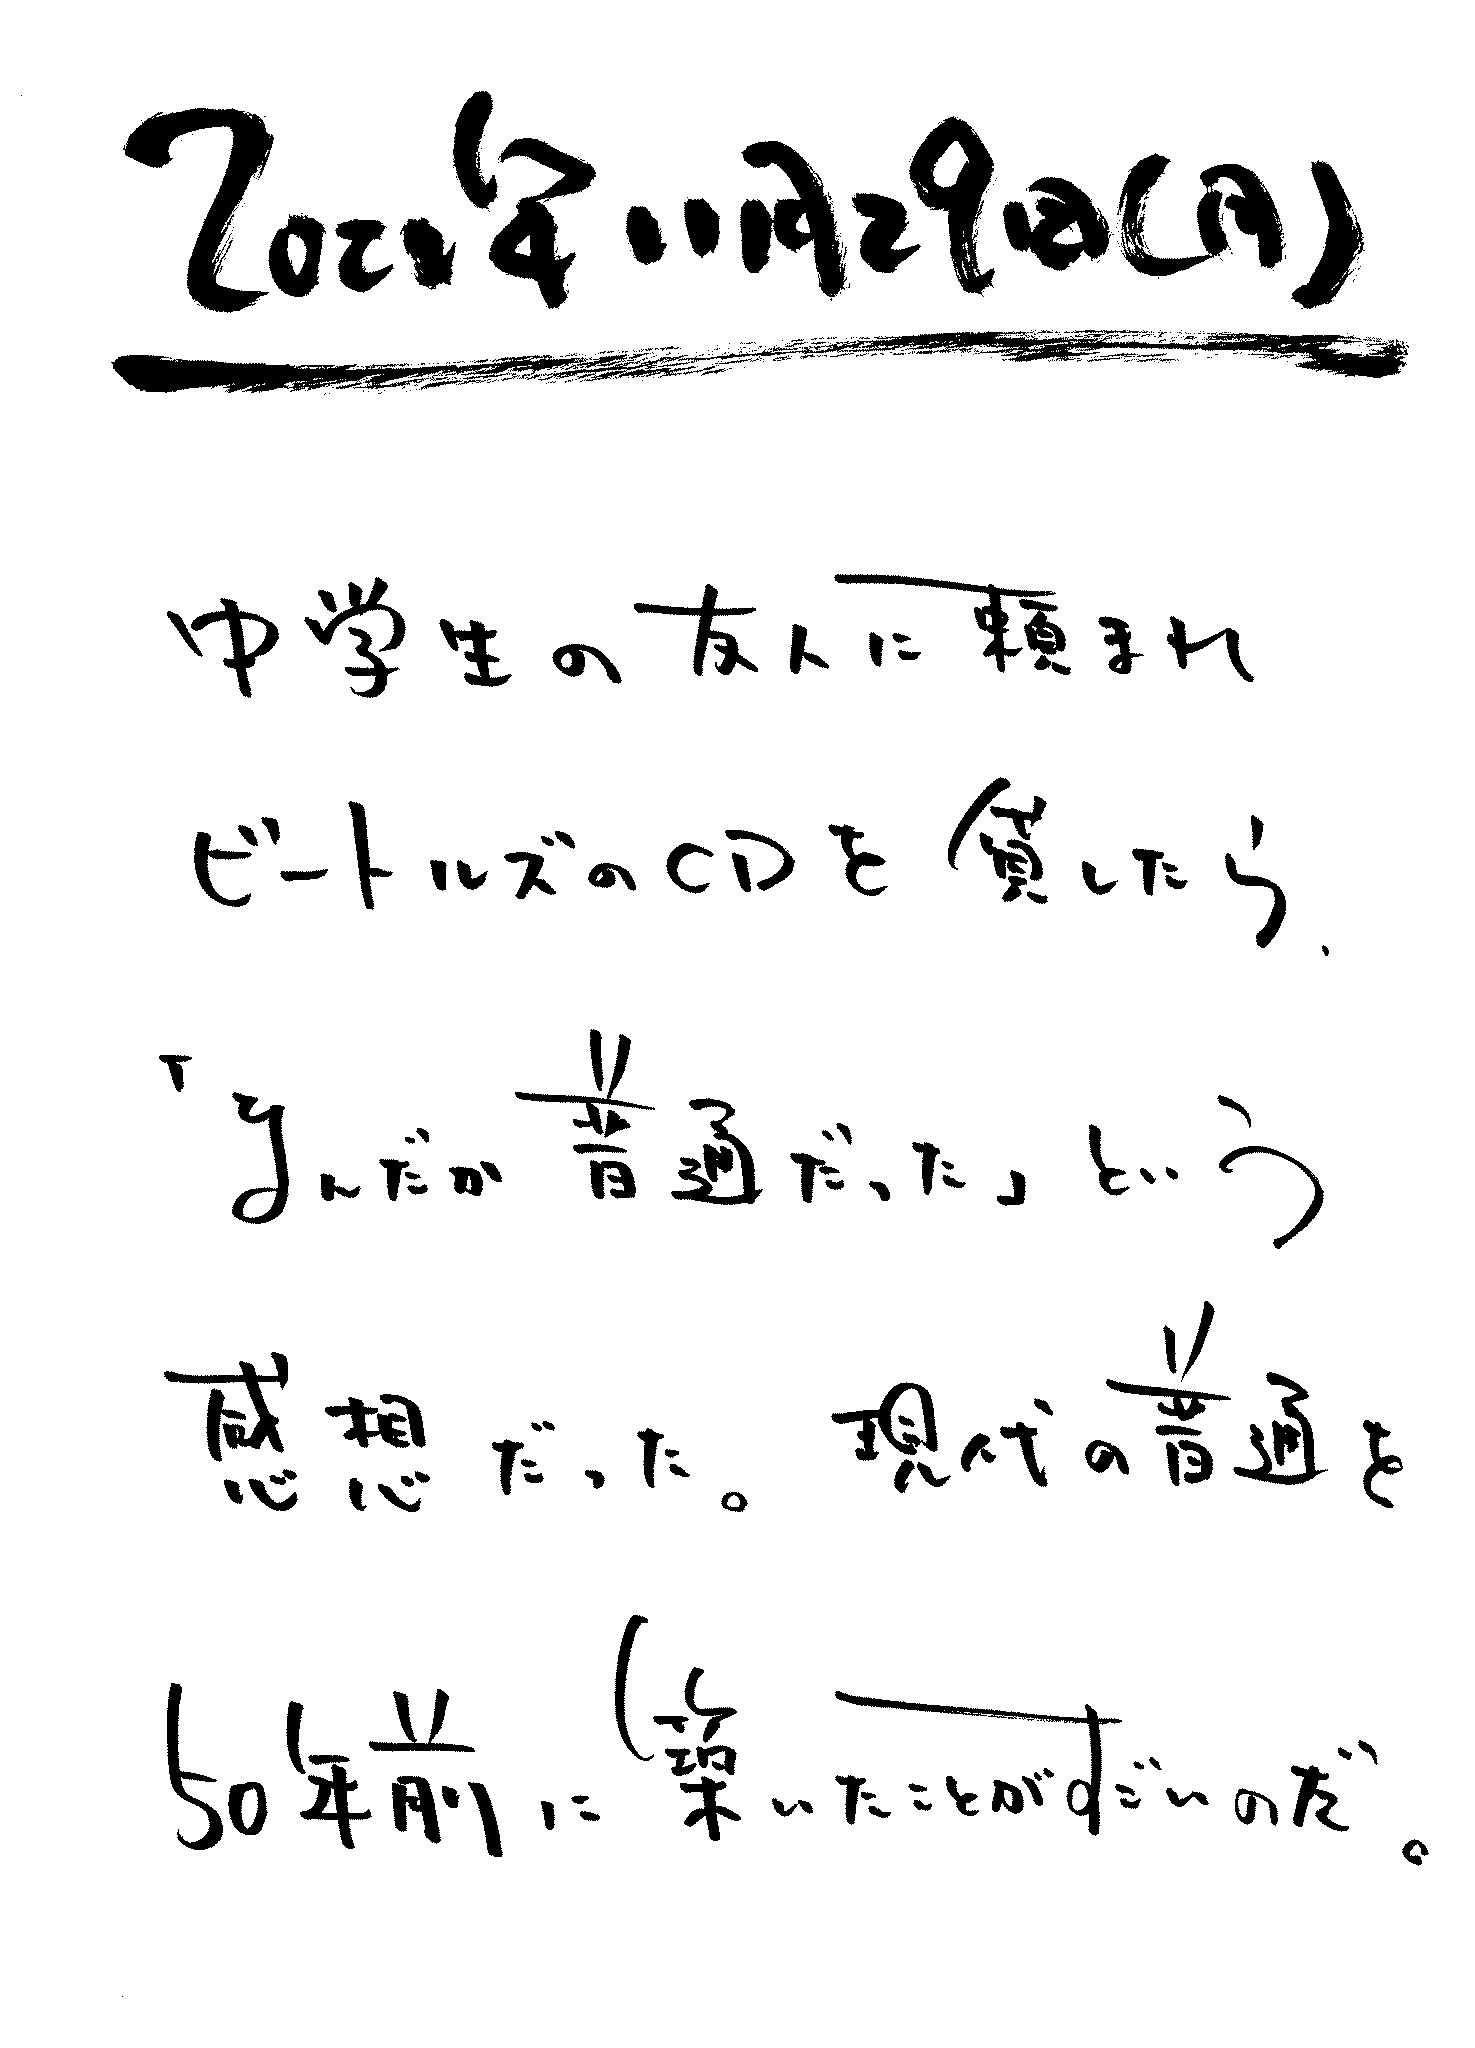 2021年11月29日(月)
中学生の友人に頼まれ
ビートルズのCDを貸したら、
「なんだか普通だった」という
感想だった。現代の普通を
50年前に築いたことがすごいのだ。